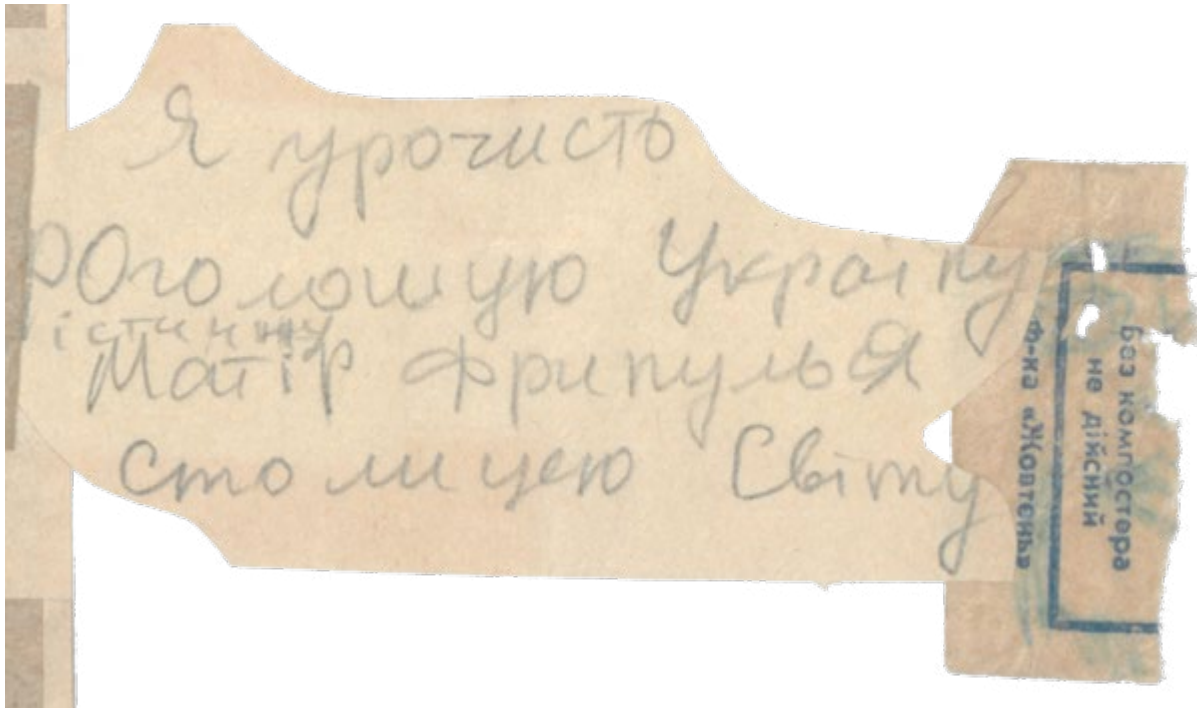 Я урочисть
роголошую Україну
істинну
Матір Фрипулья
столицею Світу
Без компостера
не дійсний
ф-ка «Жовтень»